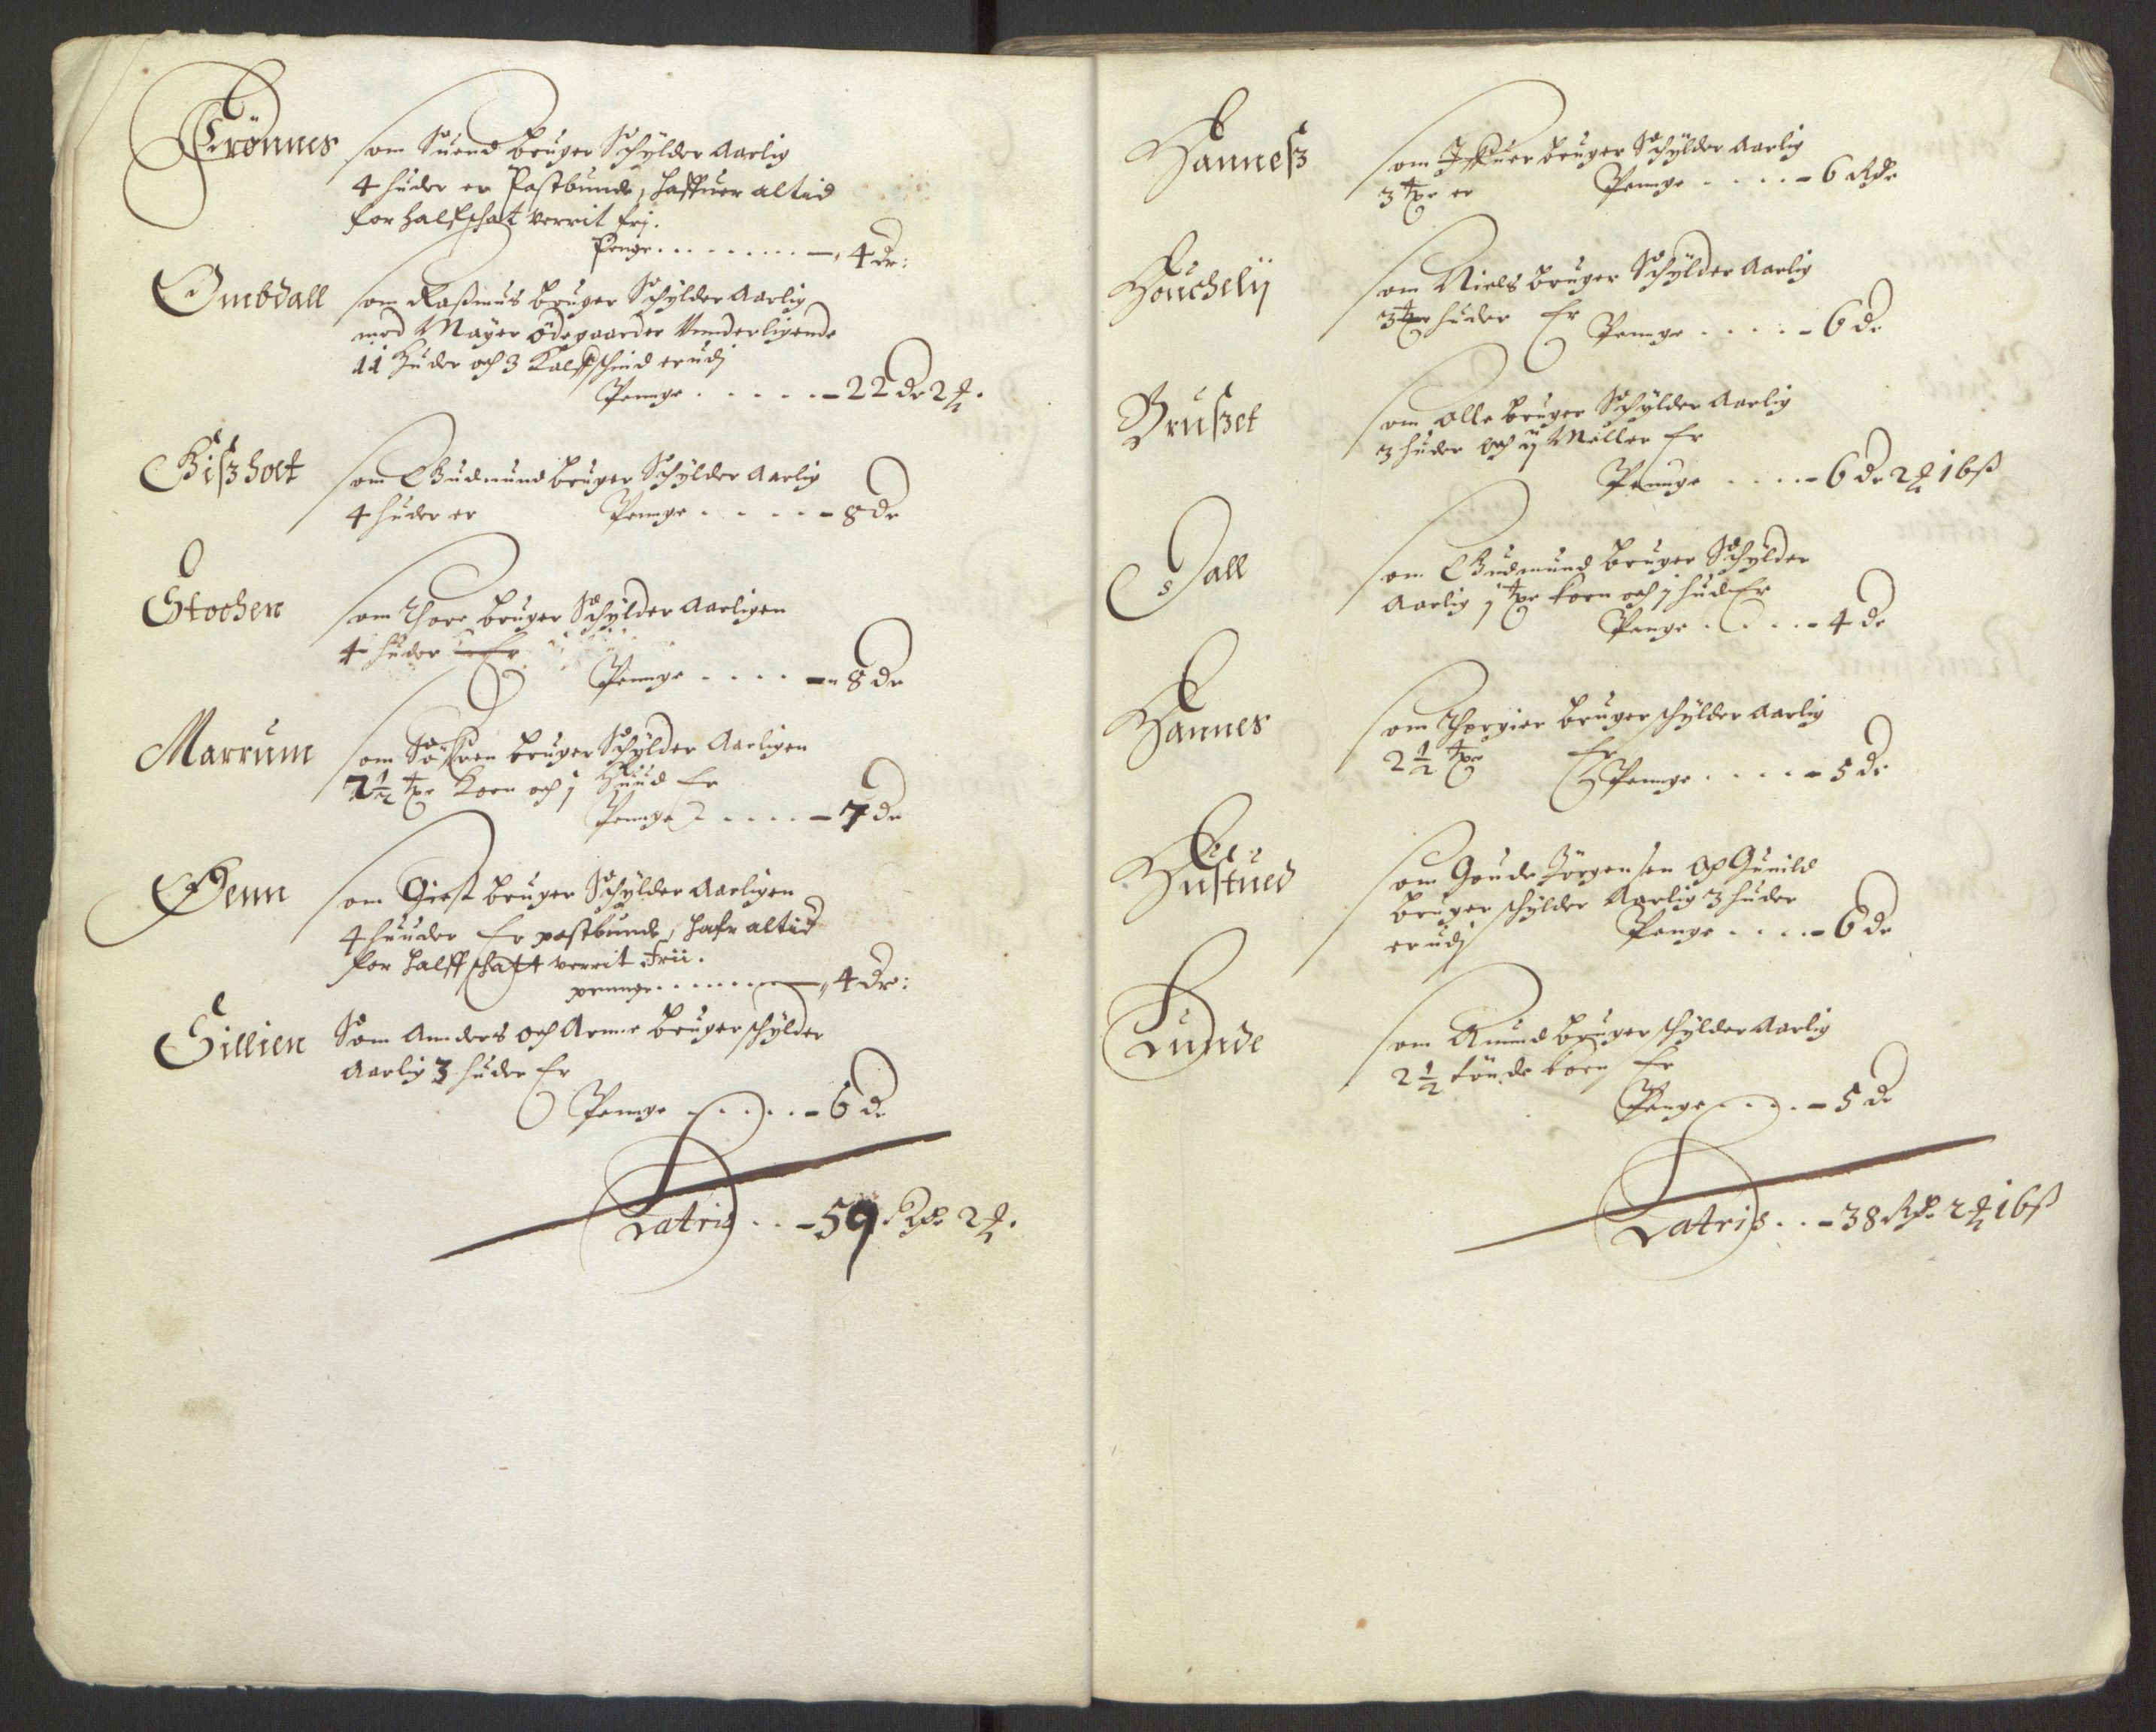 Trönnes som Suend bruger Schylder Aarlig
4 huder er Postbunde, haffuer altid
for halfschat verrit fri.
Penge . . . . . . . . . — 4 dr:
Ombdall som Rasmus bruger Schylder Aarlig
med Mayer ödegaarder Vnderligende
11 Huder och 3 Kalfschind er udj
Penge . . . . . – 22 dr 2 ꝥ.
Giszholt som Gudmund bruger Schylder Aarlig
4 huder er Penge . . . . . – 8 dr
Stochen som Thore bruger Schylder Aarligen
4 huder Er
Penge . . . . – 8 dr
Marrum som Söffren bruger Schylder Aarligen
2½ tpr Korn och j Huud Er
Penge . . . . . – 7 dr
Henn som Giest bruger Schylder Aarligen
4 huuder Er postbunde, hafr altid
for halff schatt verrit frii.
penge . . . . . . . . — 4 dr:
Sillien Som Anders och Arnne bruger schylder
Aarlig 3 huder Er
Penge . . . . . – 6 dr
Latris . . – 59 Rdr 2 ꝥ.
Hannesz som Iffuer bruger Schylder Aarlig
3 tpr er Penge . . . . . – 6 Rdr
Houchelij som Niels bruger Schylder Aarlig
3 tpr huder Er Penge . . . . . – 6 dr
Bruszet som Olle bruger Schylder Aarlig
3 huder och ij Møller Er
Penge . . . . – 6 dr 2 ꝥ 16 ß
Dall som Gudmund bruger Schylder
Aarlig j tpr korn och j hud Er
Penge . . . . . – 4 dr
Hannes som Thorgier bruger schylder Aarlig
2½ tpr Er
Penge . . . . . – 5 dr
Hustued som Goude Jörgensen och Gunild
bruger schylder Aarlig 3 huder
er udj Penge . . . . – 6 dr
Lunde som Amund bruger schylder Aarlig
2½ tönde korn Er
Penge . . . . – 5 dr
Latris . . – 38 Rdr 2 ꝥ 16 ß